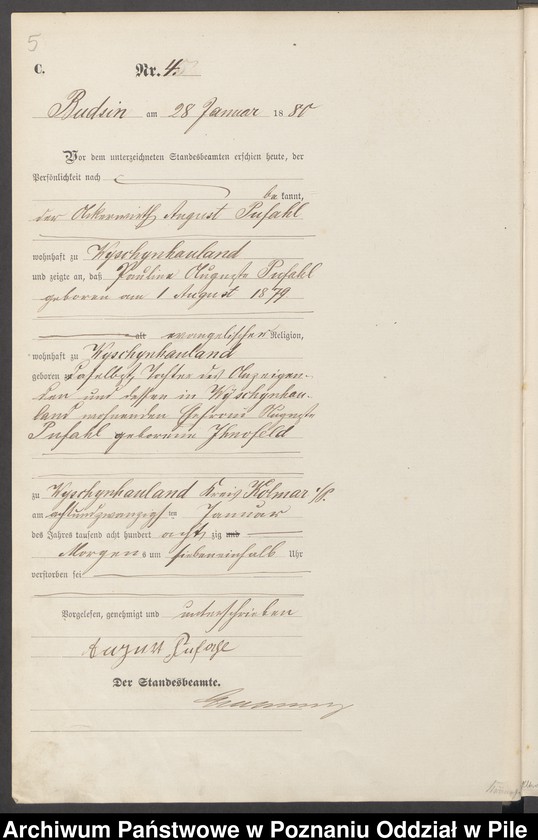 5
C.
Nr. 4.
Budsin am 28 Januar 1880
Vor dem unterzeichneten Standesbeamten erschien heute, der
Persönlichkeit nach
bekannt,
der Ackerwirth August Pufahl
wohnhaft zu Wyschynhauland
und zeigte an, daß Pauline Auguste Pufahl
geboren am 1 August 1879
alt evangelischer Religion,
wohnhaft zu Wyschynhauland
geboren daselbst, Tochter des Anzeigen-
den und dessen in Wyschynhau-
land wohnenden Ehefrau Auguste
Pufahl geborenen
zu Wyschynhauland Kreis Kolmar i/P.
am achtundzwanzigsten Januar
des Jahres tausend acht hundert achtzig und
Morgens um siebeneinhalb Uhr
verstorben sei
Vorgelesen, genehmigt und unterschrieben
August Pufahl
Der Standesbeamte.
Archiwum Państwowe w Poznaniu Oddział w Pile